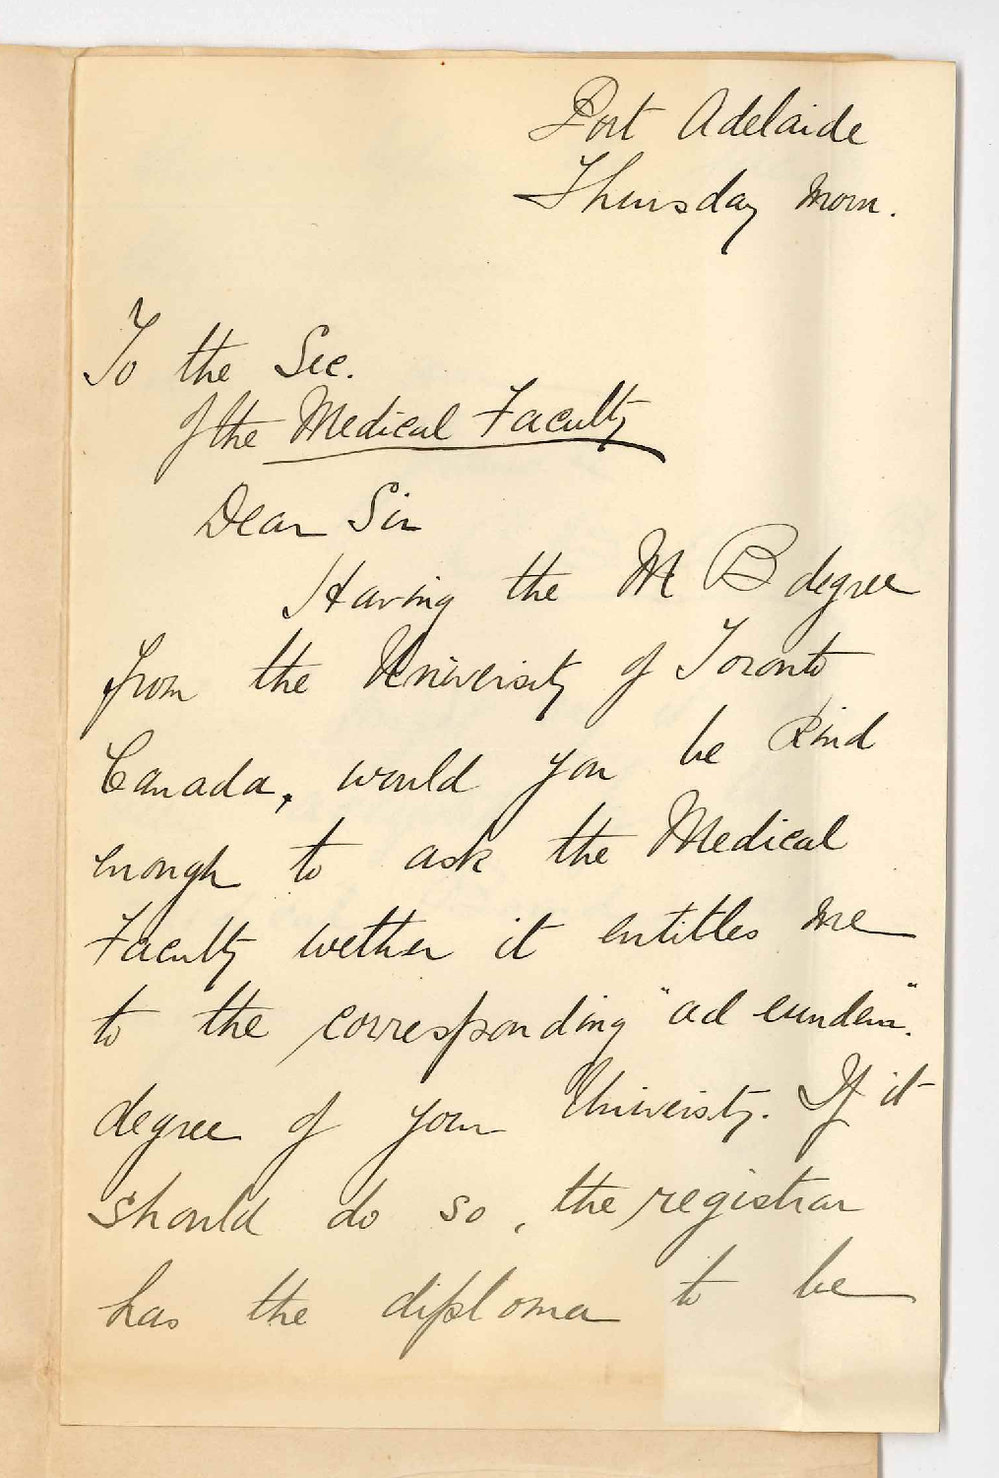 Port Adelaide
Thursday Morn.
To the Sec.
of the Medical Faculty
Dear Sir
Having the M B degree
from the University of Toronto
Canada, would you be kind
enough to ask the Medical
Faculty wether it entitles me
to the corresponding "ad eundem".
degree of your University. If it
should do so, the registrar
has the diploma to be